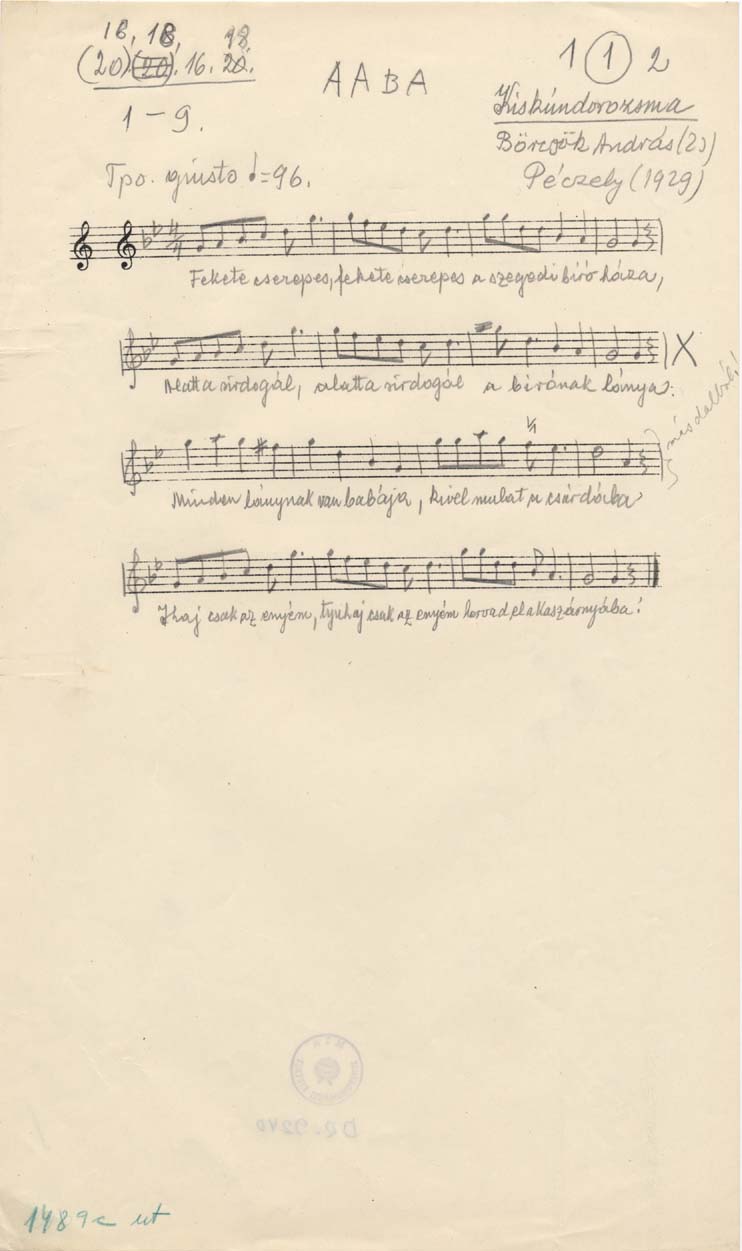 18, 18, 18.
(20) (20). 16. 20.
1 - 9.
A A B A
1 1 2
Kiskúndorozsma
Börcsök András (23)
Péczely (1929)
Tpo. giusto ♩=96.
Fekete cserepes, fekete cserepes a szegedi biró háza,
Alatta sirdogál, alatta sirdogál a birónak lánya:
X
más dalból!
Minden lánynak van babája, kivel mulat a csárdába
Ihaj csak az enyém, tyuhaj csak az enyém lorvad el a kaszárnyába!
D2.9240
1489c ut